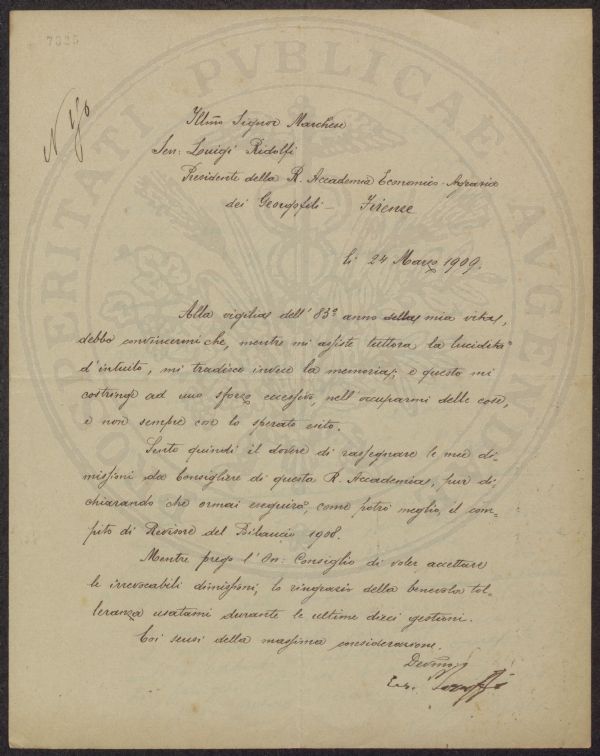 7325
N 130
Illmo Signor Marchese
Sen: Luigi Ridolfi
Presidente della R. Accademia Economico-Agraria
dei Georgofili — Firenze
li 24 Marzo 1909.
Alla vigilia dell' 83° anno della mia vita,
debbo convincermi che, mentre mi assiste tuttora la lucidità
d'intuito, mi tradisce invece la memoria; e questo mi
costringe ad uno sforzo eccessivo, nell'occuparmi delle cose,
e non sempre con lo sperato esito.
Sento quindi il dovere di rassegnare le mie di-
missioni da Consigliere di questa R. Accademia, pur di-
chiarando che ormai eseguirò, come potrò meglio, il com-
pito di Revisore del Bilancio 1908.
Mentre prego l'On: Consiglio di voler accettare
le irrevocabili dimissioni, lo ringrazio della benevola tol-
leranza usatami durante le ultime dieci gestioni.
Coi sensi della massima considerazione.
Devmo
PROSPERITATI PVBLICAE AVGENDAE